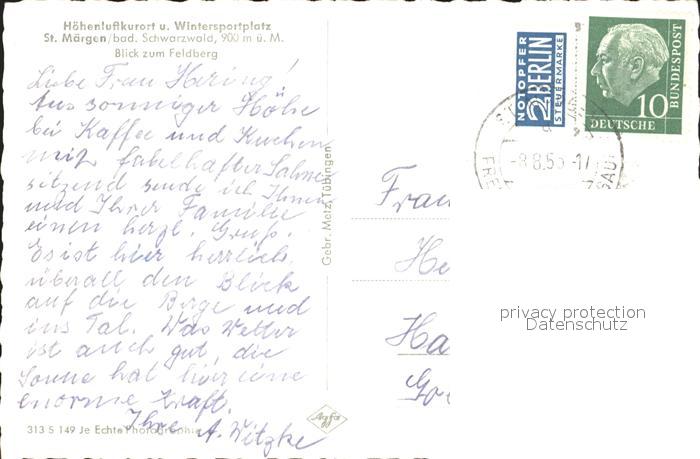 Höhenluftkurort u. Wintersportplatz
St. Märgen/bad. Schwarzwald, 900 m ü. M.
Blick zum Feldberg
Liebe Frau Hering!
Aus sonniger Höhe
bei Kaffee und Kuchen
mit fabelhafter Sahne
sitzend sende ich Ihnen
und Ihrer Familie
einen herzl. Gruß.
Es ist hier herrlich
überall den Blick
auf die Berge und
ins Tal. Das Wetter
ist auch gut, die
Sonne hat hier eine
enorme Kraft.
Ihre A. Witzke
313 S 149 Je Echte Photographie
Agfa
Gebr. Metz, Tübingen
NOTOPFER
2 BERLIN
STEUERMARKE
10
DEUTSCHE
BUNDESPOST
-8.8.55-17
Frau
He
Ha
privacy protection
Datenschutz